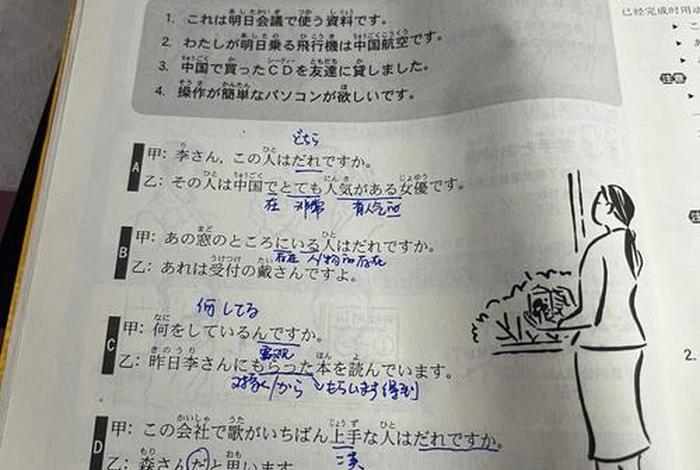 已经完成时用动
1. これは明日会議で使う資料です。
2. わたしが明日乗る飛行機は中国航空です。
3. 中国で買ったCDを友達に貸しました。
4. 操作が簡単なパソコンが欲しいです。
注意
どちら
A 甲: 李さん, この人はだれですか。
乙: その人は中国でとても人気がある女優です。
在 非常 有人气的
B 甲: あの窓のところにいる人はだれですか。
存在 人物的存在
乙: あれは受付の戴さんですよ。
何してる
C 甲: 何をしているんですか。
乙: 昨日李さんにもらった本を読んでいます。
对象/から もらいます 得到
D 甲: この会社で歌がいちばん上手な人はだれですか。
乙: 森さんだと思います
2.